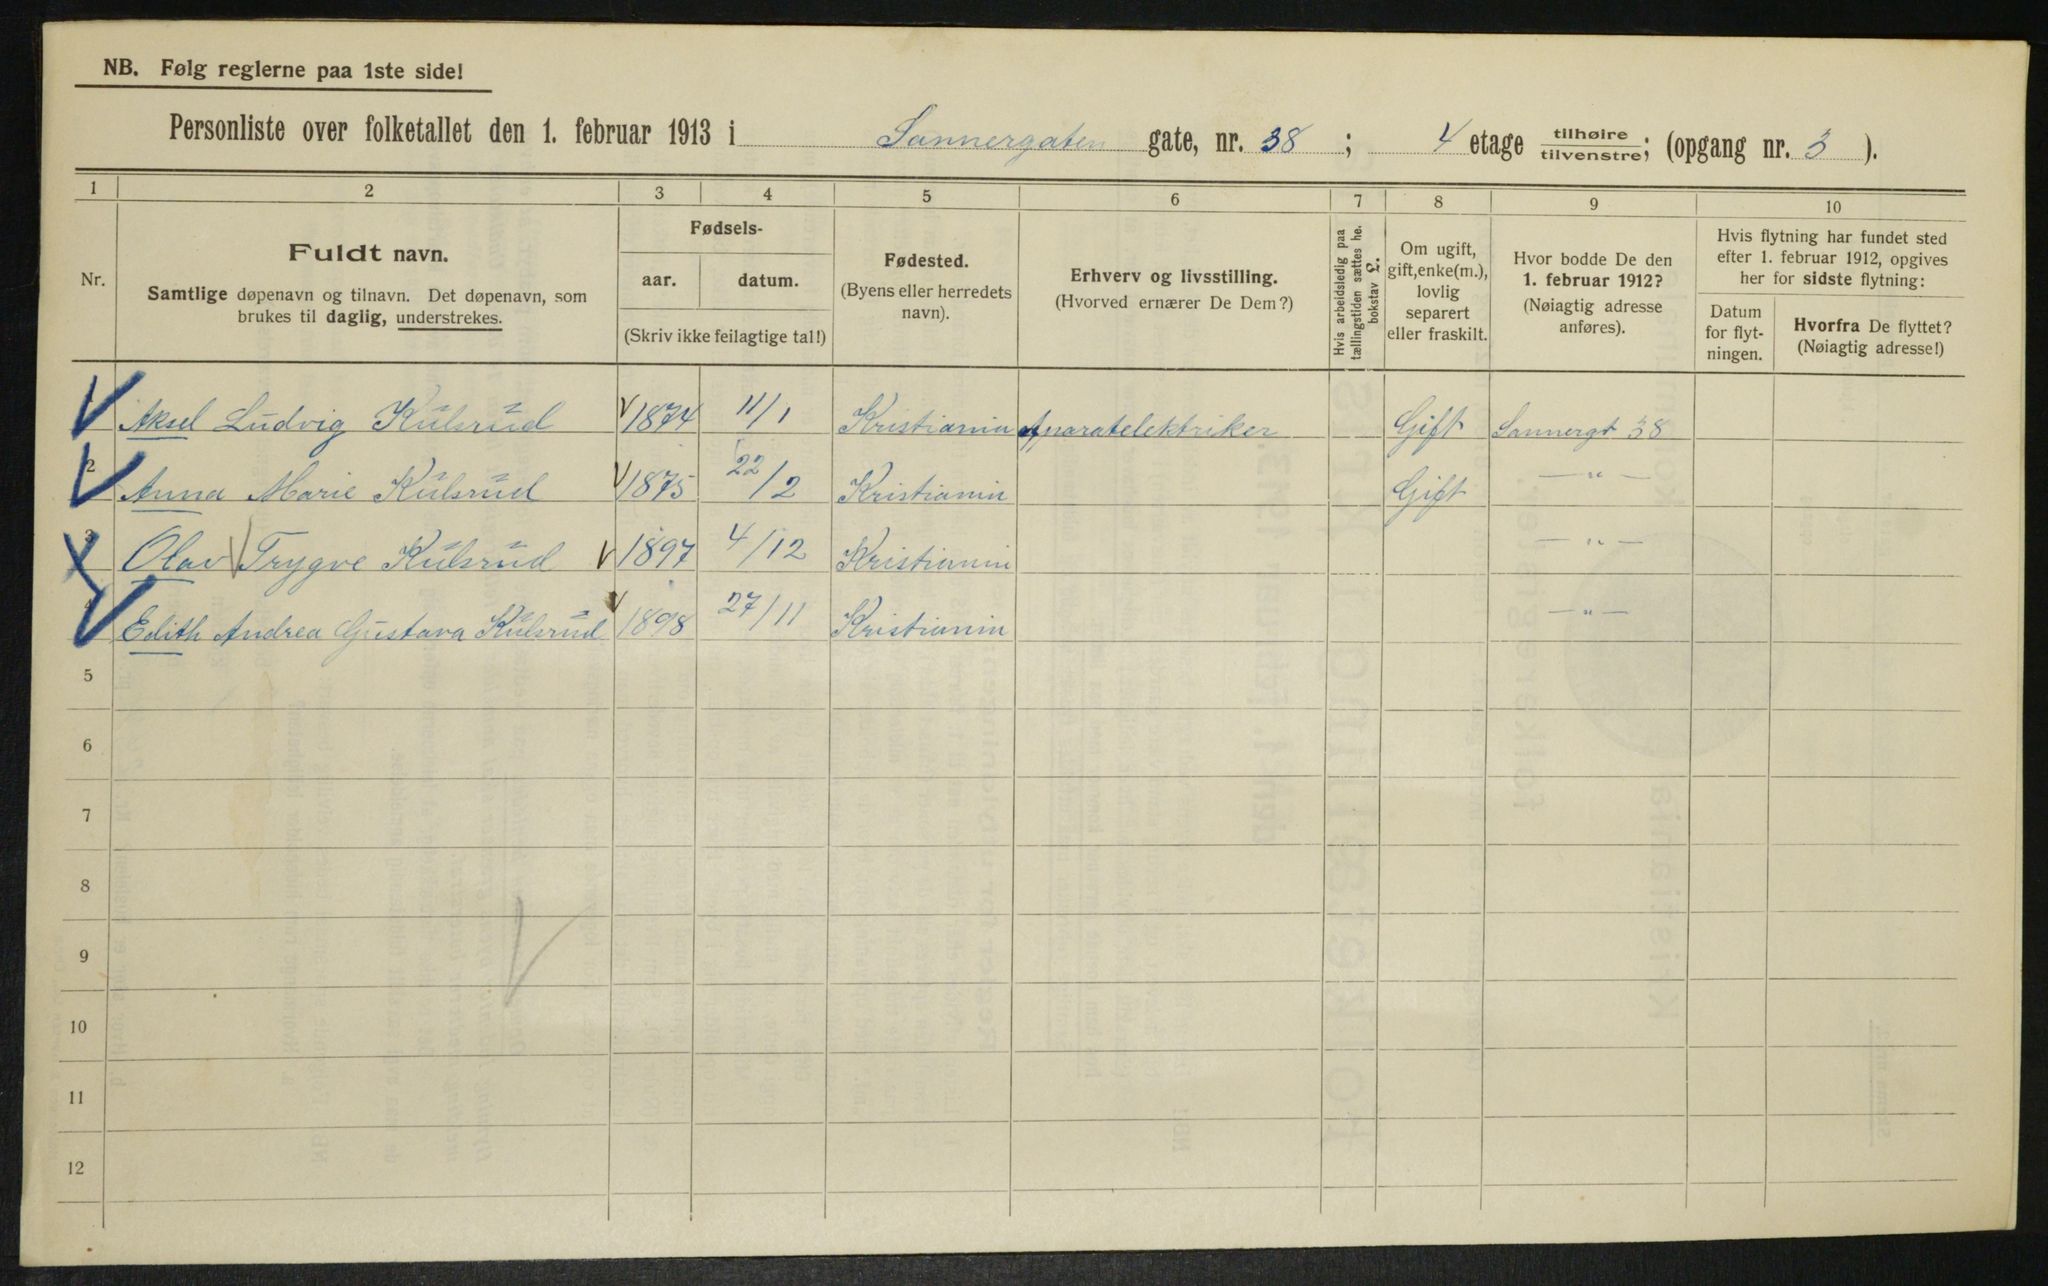 NB. Følg reglerne paa 1ste side!
Personliste over folketallet den 1. februar 1913 i Sannergaten gate, nr. 38 ; 4 etage tilhøire/tilvenstre; (opgang nr. 3 ).
1 2 3 4 5 6 7 8 9 10
Nr.
Fuldt navn.
Samtlige døpenavn og tilnavn. Det døpenavn, som
brukes til daglig, understrekes.
Fødsels-
aar. datum.
(Skriv ikke feilagtige tal!)
Fødested.
(Byens eller herredets
navn).
Erhverv og livsstilling.
(Hvorved ernærer De Dem?)
Hvis arbeidsledig paa
tællingstiden sættes he.
bokstav L.
Om ugift,
gift, enke(m.),
lovlig
separert
eller fraskilt.
Hvor bodde De den
1. februar 1912?
(Nøiagtig adresse
anføres).
Hvis flytning har fundet sted
efter 1. februar 1912, opgives
her for sidste flytning:
Datum
for flyt-
ningen.
Hvorfra De flyttet?
(Nøiagtig adresse!)
Aksel Ludvig Kulsrud 1874 11/1 Kristiania Aparatelektriker Gift Sannergt 38
2 Anna Marie Kulsrud 1875 22/2 Kristiania Gift —„—
3 Olav Trygve Kulsrud 1897 4/12 Kristiania —„—
4 Edith Andrea Gustava Kulsrud 1898 27/11 Kristiania —„—
5
6
7
8
9
10
11
12